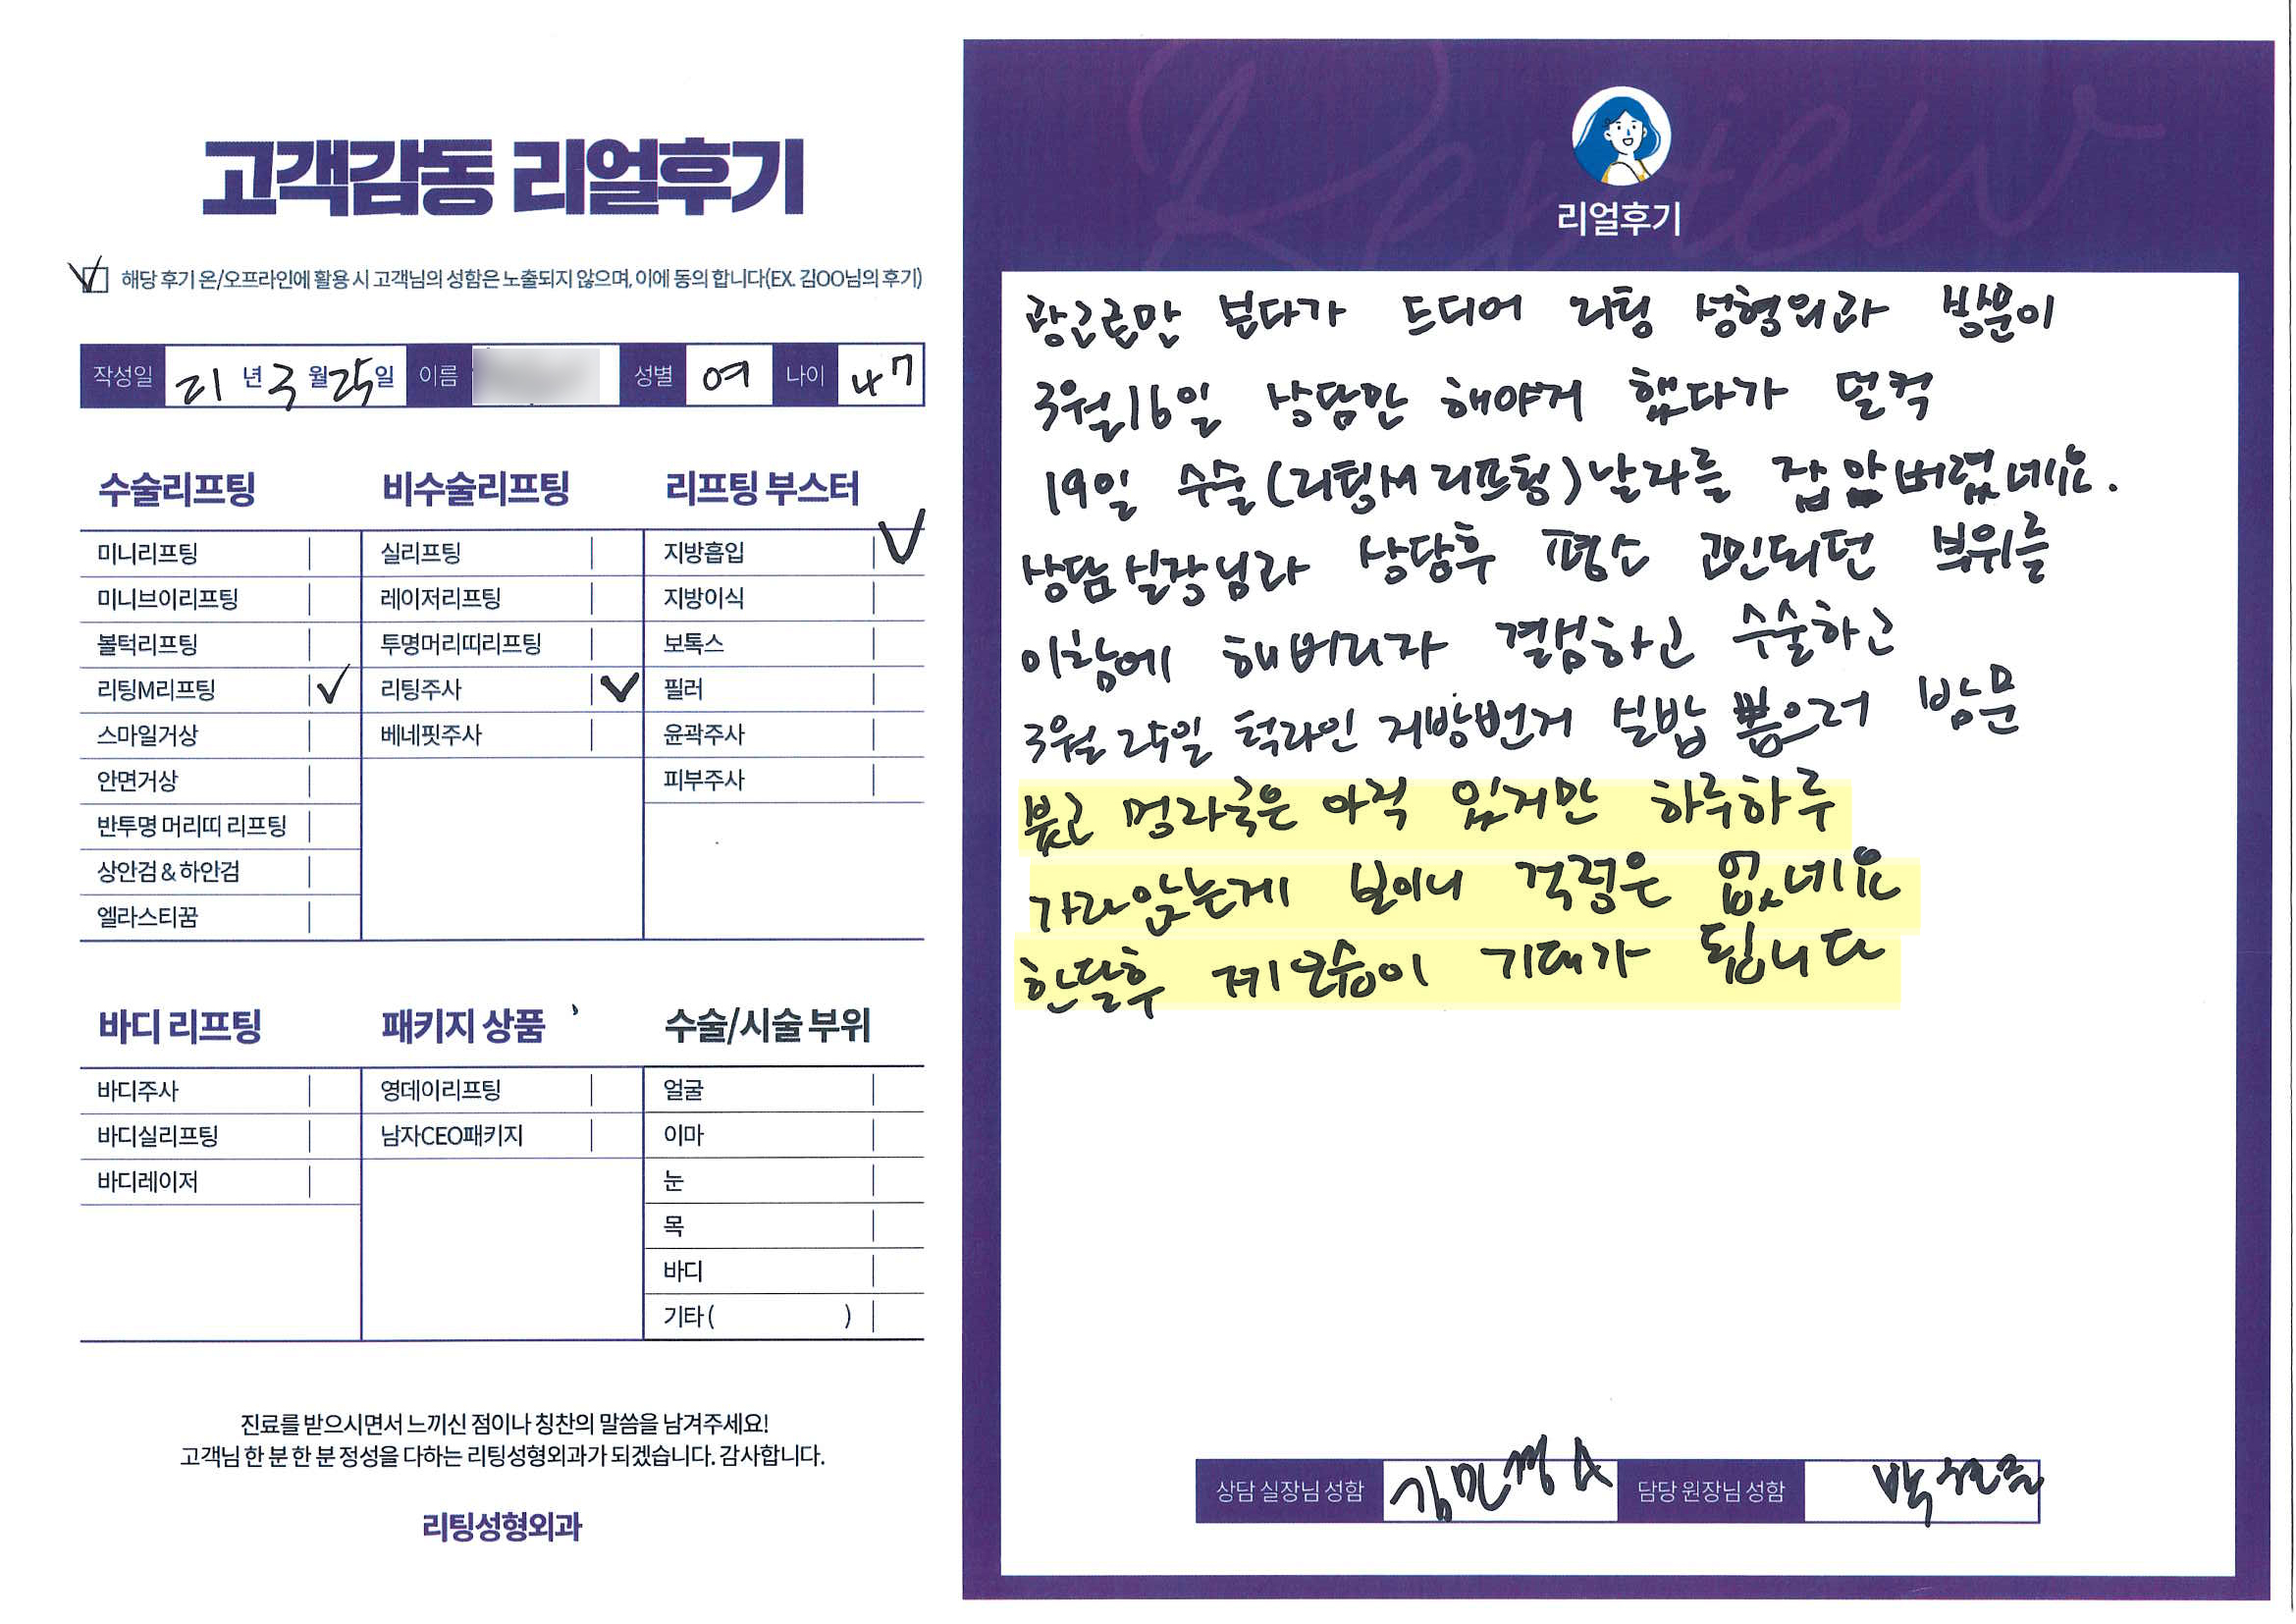 고객감동 리얼후기
해당 후기 온/오프라인에 활용 시 고객님의 성함은 노출되지 않으며, 이에 동의 합니다(EX. 김OO님의 후기)
작성일 21 년 3 월 25 일 이름 성별 여 나이 47
수술리프팅
미니리프팅
미니브이리프팅
볼턱리프팅
리팅M리프팅
스마일거상
안면거상
반투명 머리띠 리프팅
상안검 & 하안검
엘라스티꿈
비수술리프팅
실리프팅
레이저리프팅
투명머리띠리프팅
리팅주사
베네핏주사
리프팅 부스터
지방흡입
지방이식
보톡스
필러
윤곽주사
피부주사
바디 리프팅
바디주사
바디실리프팅
바디레이저
패키지 상품
영데이리프팅
남자CEO패키지
수술/시술 부위
얼굴
이마
눈
목
바디
기타 ( )
진료를 받으시면서 느끼신 점이나 칭찬의 말씀을 남겨주세요!
고객님 한 분 한 분 정성을 다하는 리팅성형외과가 되겠습니다. 감사합니다.
리팅성형외과
Review
리얼후기
광고글만 본다가 드디어 리팅 성형외과 방문이
3월16일 상담만 해야지 했다가 덜컥
19일 수술(리팅M리프팅)날자를 잡았버렸네요.
상담실장님과 상담후 평소 고민되던 부위를
이참에 해버리자 결심하고 수술하고
3월 25일 턱라인 지방번거 실밥 뽑으러 방문
붓고 멍자국은 아직 있지만 하루하루
가라앉는게 보이니 걱정은 없네요
한달후 제모습이 기대가 됩니다
상담 실장님 성함 김민정 담당 원장님 성함 박